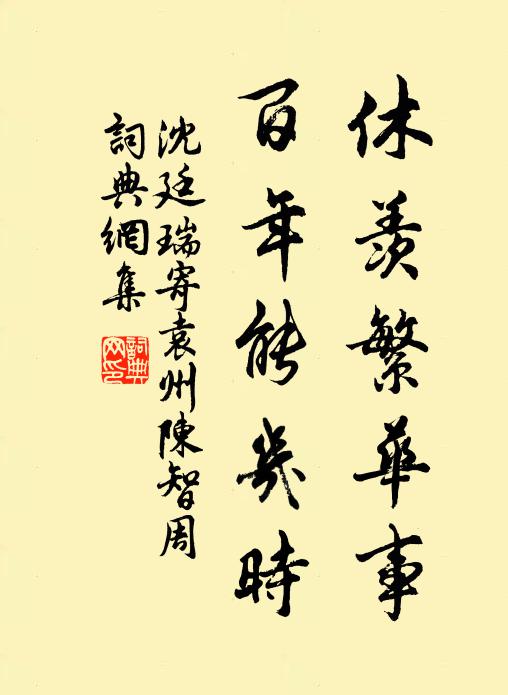 休羨繁華事
百年能幾時
沈廷瑞寄袁州陳智周
詞典網集
詞典网印